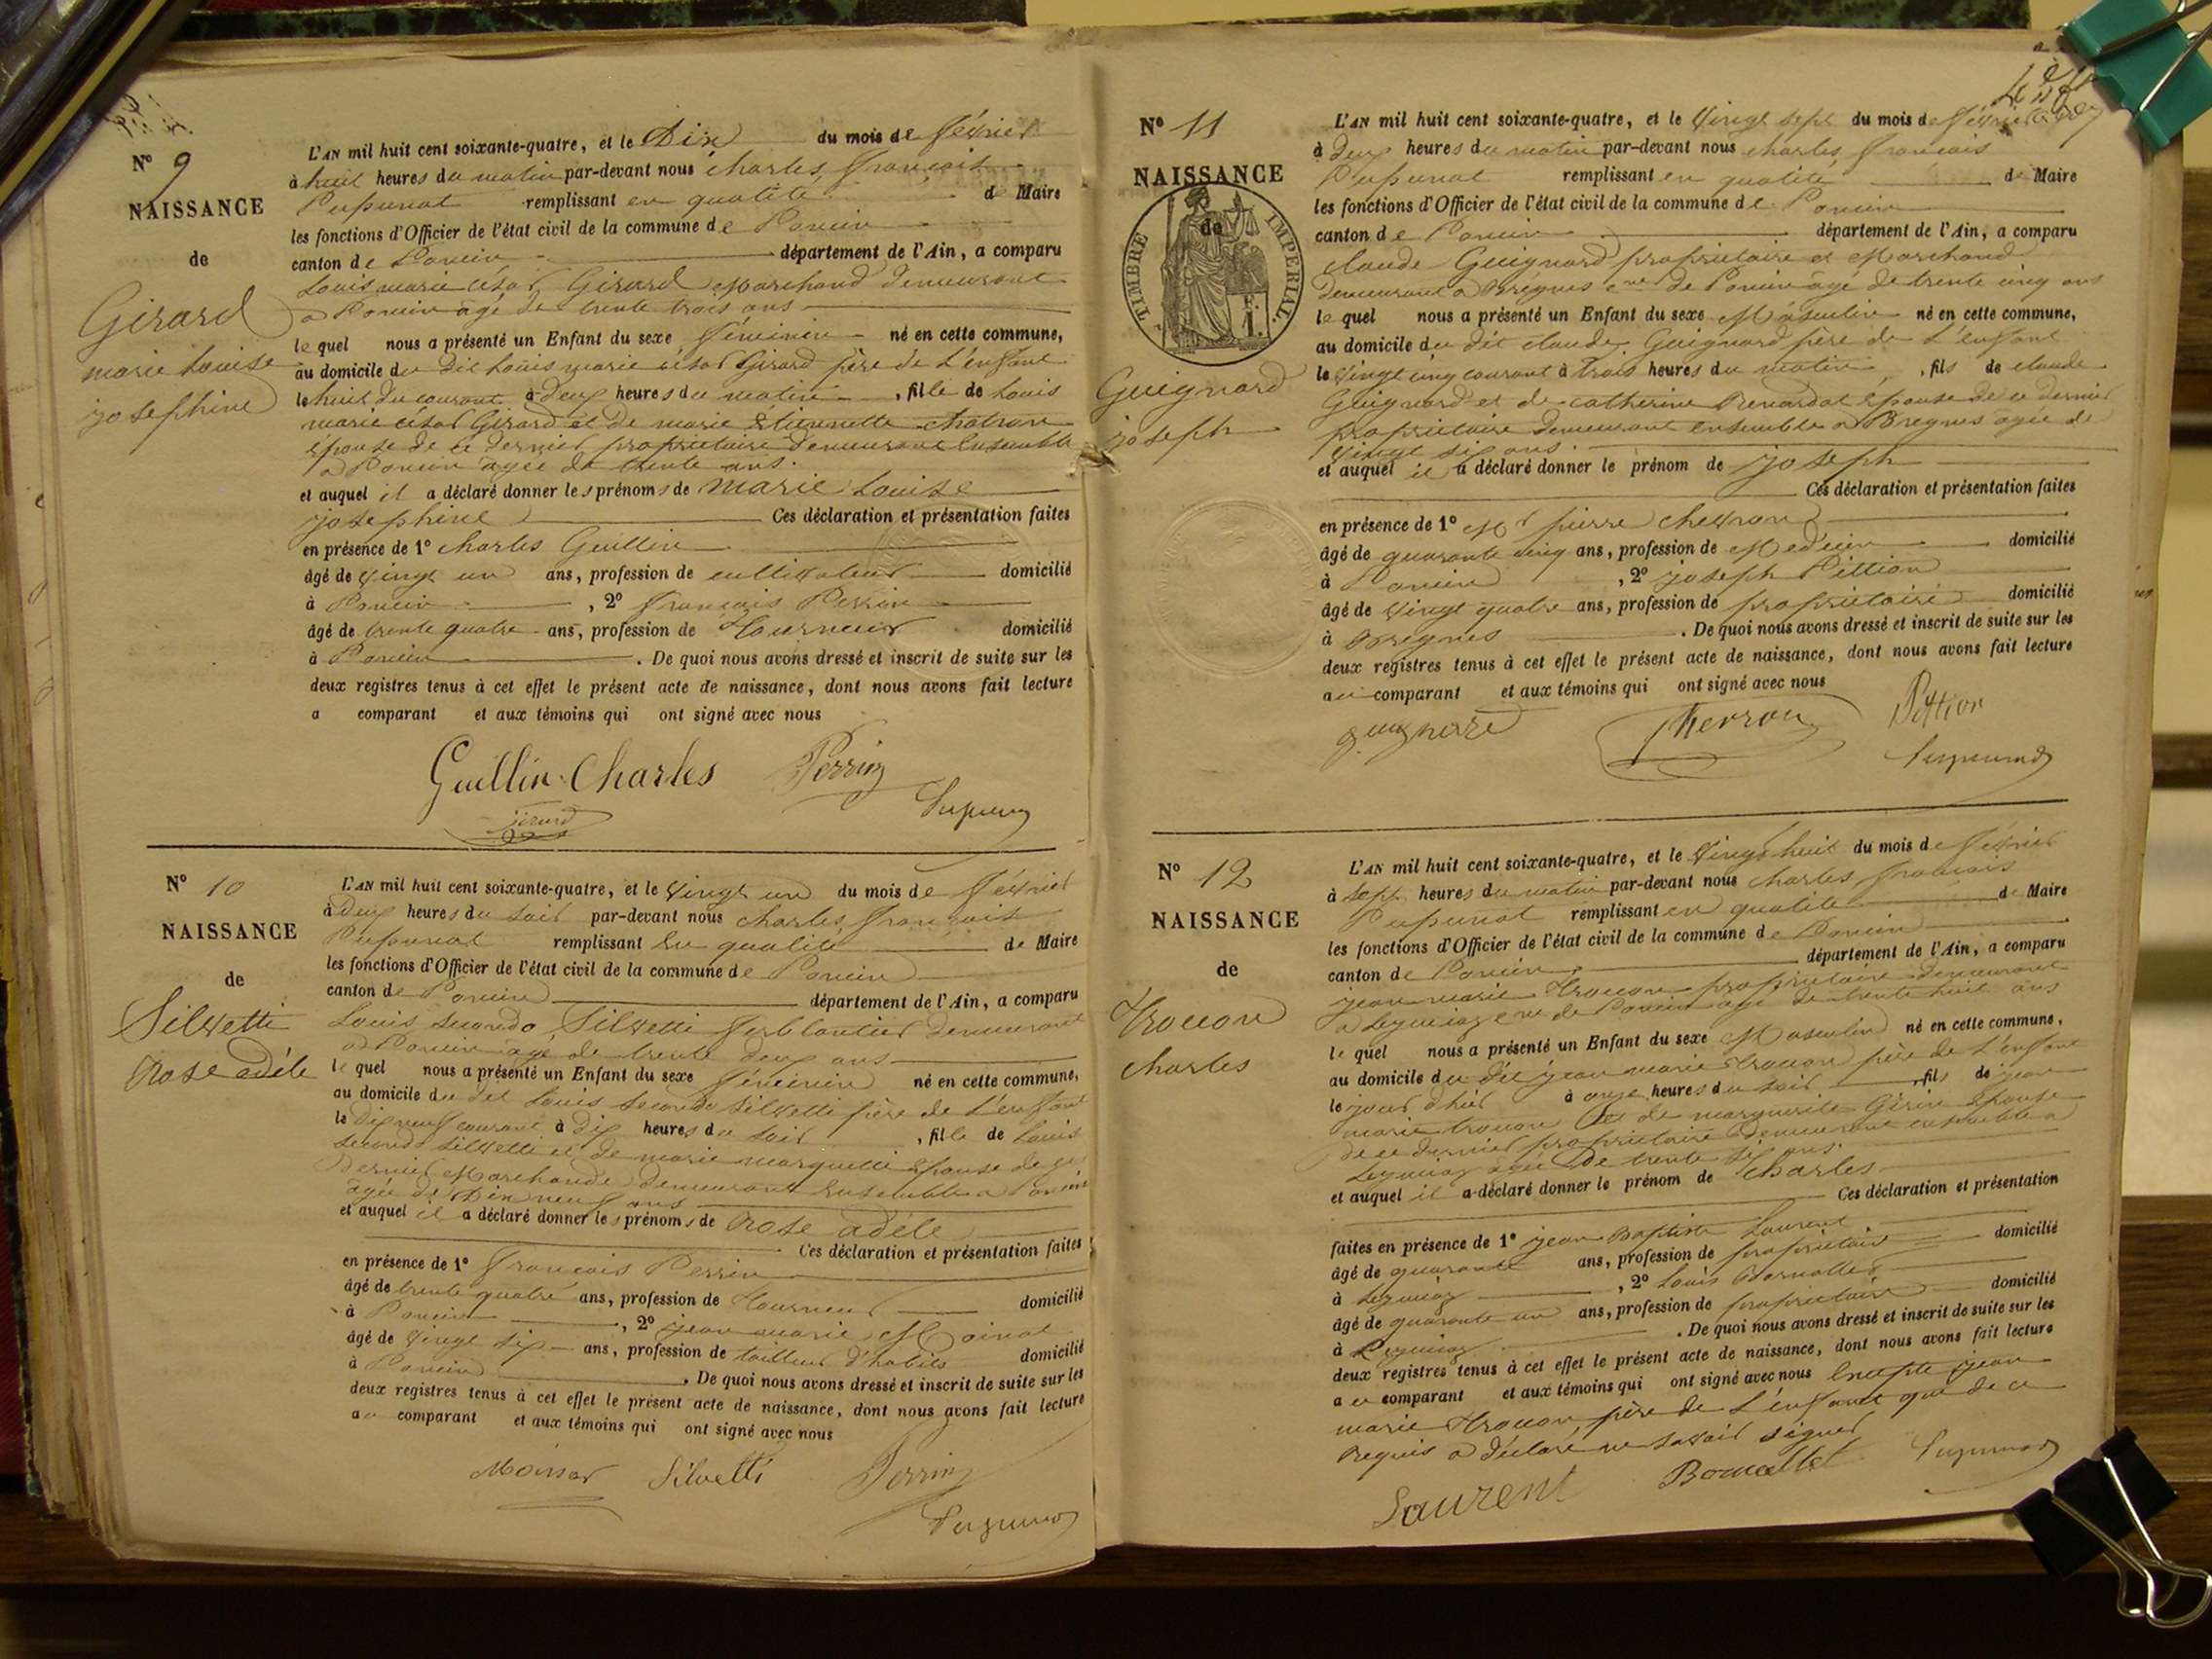 N° 9
NAISSANCE
de
Girard
marie Louise
josephine
L'AN mil huit cent soixante-quatre, et le Dix du mois de février
à huit heures du matin par-devant nous charles françois
Pupunat remplissant en qualité de Maire
les fonctions d'Officier de l'état civil de la commune de Poncin
canton de Poncin département de l'Ain, a comparu
Louis marie césar Girard Marchand demeurant
a Poncin âgé de trente trois ans
le quel nous a présenté un Enfant du sexe féminin né en cette commune,
au domicile du dit Louis marie césar Girard père de l'enfant
le huit du courant à deux heures du matin, fille de Louis
marie césar Girard et de marie Étiennette chatran
épouse de ce dernier propriétaire demeurant Ensemble
a Poncin agée de trente ans.
et auquel il a déclaré donner les prénoms de marie Louise
josephine Ces déclaration et présentation faites
en présence de 1° charles Guillin
âgé de vingt un ans, profession de cultivateur domicilié
à Poncin, 2° françois Perrin
âgé de trente quatre ans, profession de Tourneur domicilié
à Poncin. De quoi nous avons dressé et inscrit de suite sur les
deux registres tenus à cet effet le présent acte de naissance, dont nous avons fait lecture
a comparant et aux témoins qui ont signé avec nous
Guillin Charles Perrin
Girard Pupunat
N° 10
NAISSANCE
de
Silvetti
Rose adéle
L'AN mil huit cent soixante-quatre, et le vingt un du mois de février
à deux heures du soir par-devant nous charles françois
Pupunat remplissant En qualité de Maire
les fonctions d'Officier de l'état civil de la commune de Poncin
canton de Poncin département de l'Ain, a comparu
Louis Secondo Silvetti ferblantier demeurant
a Poncin âgé de trente deux ans
le quel nous a présenté un Enfant du sexe féminin né en cette commune,
au domicile du dit Louis Secondo Silvetti père de l'enfant
le dix neuf courant à dix heures du soir, fille de Louis
secondo Silvetti et de marie marquetti épouse de ce
dernier Marchande demeurant Ensemble a Poncin
agée de Dix neuf ans
et auquel il a déclaré donner les prénoms de Rose adéle
Ces déclaration et présentation faites
en présence de 1° françois Perrin
âgé de trente quatre ans, profession de Tourneur domicilié
à Poncin, 2° jean marie Moinat
âgé de vingt six ans, profession de tailleur d'habits domicilié
à Poncin. De quoi nous avons dressé et inscrit de suite sur les
deux registres tenus à cet effet le présent acte de naissance, dont nous avons fait lecture
au comparant et aux témoins qui ont signé avec nous
Silvetti Perrin
Pupunat
N° 11
NAISSANCE
de
TIMBRE IMPERIAL
Guignard
joseph
L'AN mil huit cent soixante-quatre, et le vingt sept du mois de février
à deux heures du matin par-devant nous charles françois
Pupunat remplissant en qualité de Maire
les fonctions d'Officier de l'état civil de la commune de Poncin
canton de Poncin département de l'Ain, a comparu
claude Guignard propriétaire et Marchand
demeurant a Brégnes cne de Poncin âgé de trente cinq ans
le quel nous a présenté un Enfant du sexe Masculin né en cette commune,
au domicile du dit claude Guignard père de l'enfant
le vingt cinq courant à trois heures du matin, fils de claude
Guignard et de catherine Renardat épouse de ce dernier
propriétaire demeurant ensemble a Bregnes agée de
vingt six ans.
et auquel il a déclaré donner le prénom de joseph
Ces déclaration et présentation faites
en présence de 1° Mr pierre chevron
âgé de quarante cinq ans, profession de Medecin domicilié
à Poncin, 2° joseph Pittion
âgé de vingt quatre ans, profession de propriétaire domicilié
à Brégnes. De quoi nous avons dressé et inscrit de suite sur les
deux registres tenus à cet effet le présent acte de naissance, dont nous avons fait lecture
au comparant et aux témoins qui ont signé avec nous
Pittion
Pupunat
N° 12
NAISSANCE
de
Trocon
charles
L'AN mil huit cent soixante-quatre, et le vingt huit du mois de février
à sept heures du matin par-devant nous charles françois
Pupunat remplissant en qualité de Maire
les fonctions d'Officier de l'état civil de la commune de Poncin
canton de Poncin département de l'Ain, a comparu
jean marie Trocon propriétaire demeurant
a Leymiaz cne de Poncin agé de trente huit ans
le quel nous a présenté un Enfant du sexe Masculin né en cette commune,
au domicile du dit jean marie Trocon père de l'enfant
le jour d'hier à onze heures du soir, fils de jean
marie trocon et de marguerite Girin épouse
de ce dernier propriétaire demeurant ensemble a
Leymiaz agée de trente six ans.
et auquel il a déclaré donner le prénom de charles
Ces déclaration et présentation
faites en présence de 1° jean Baptiste Laurent
âgé de quarante ans, profession de propriétaire domicilié
à Leymiaz, 2° Louis
âgé de quarante un ans, profession de propriétaire domicilié
à Leymiaz. De quoi nous avons dressé et inscrit de suite sur les
deux registres tenus à cet effet le présent acte de naissance, dont nous avons fait lecture
au comparant et aux témoins qui ont signé avec nous Excepté jean
marie Trocon père de l'enfant qui de ce
Requis a déclaré ne savoir signer
Laurent Pupunat